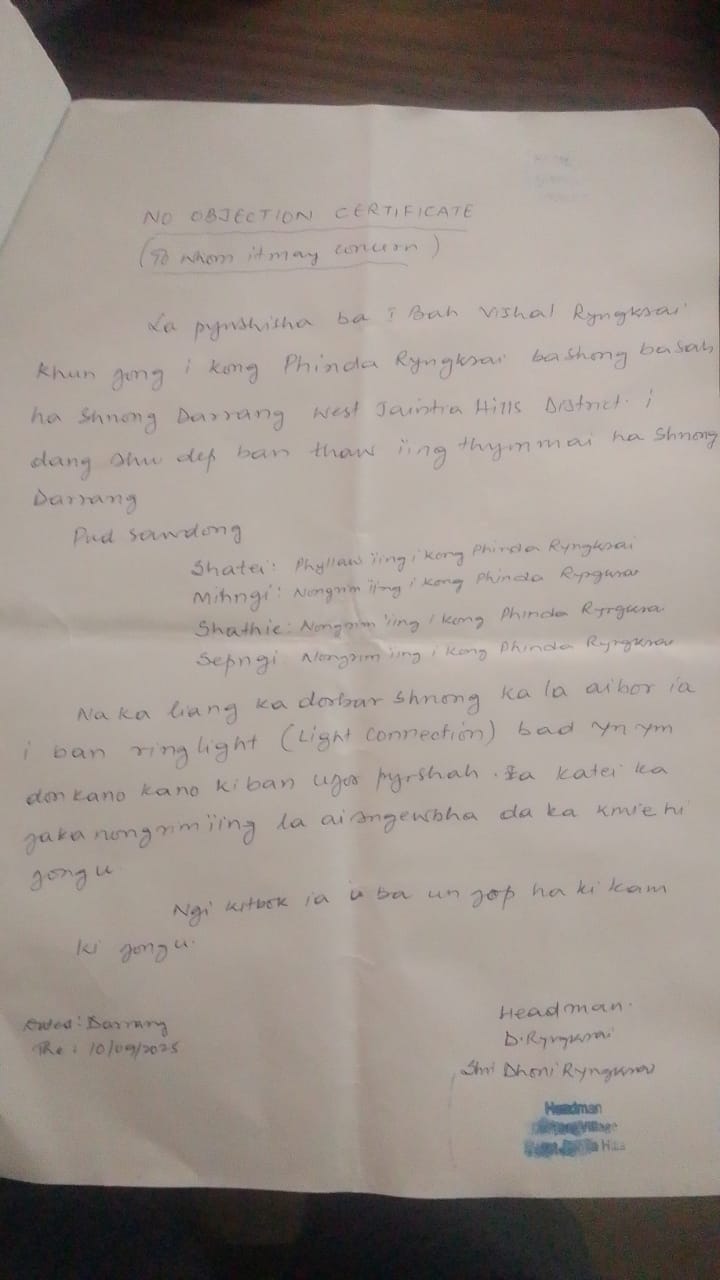 NO OBJECTION CERTIFICATE
(To whom it may concern)
La pynshisha ba i Bah Vishal Ryngksai
Khun jong i kong Phinda Ryngksai bashong basah
ha Shnong Darrang West Jaintia Hills District. i
dang shu dep ban thaw ïing thymmai ha Shnong
Darrang
Pud sawdong
Shatei: Phyllaw ïing i kong Phinda Ryngksai
Mihngi: Nongrim ïing i kong Phinda Ryngksai
Shathie: Nongrim ïing i kong Phinda Ryngksai
Sepngi Nongrim ïing i kong Phinda Ryngksai
Na ka liang ka dorbar shnong ka la aibor ia
i ban ring light (Light connection) bad yn ym
don kano kano ki ban ujor pyrshah. Ia katei ka
jaka nongrim ïing la ai sngewbha da ka kmie hi
jong u.
Ngi kitbok ia u ba un jop ha ki kam
ki jong u.
Darrang
The: 10/09/2025
Headman.
D. Ryngksai
Shri Dhoni Ryngksai
Headman
Village
Hills